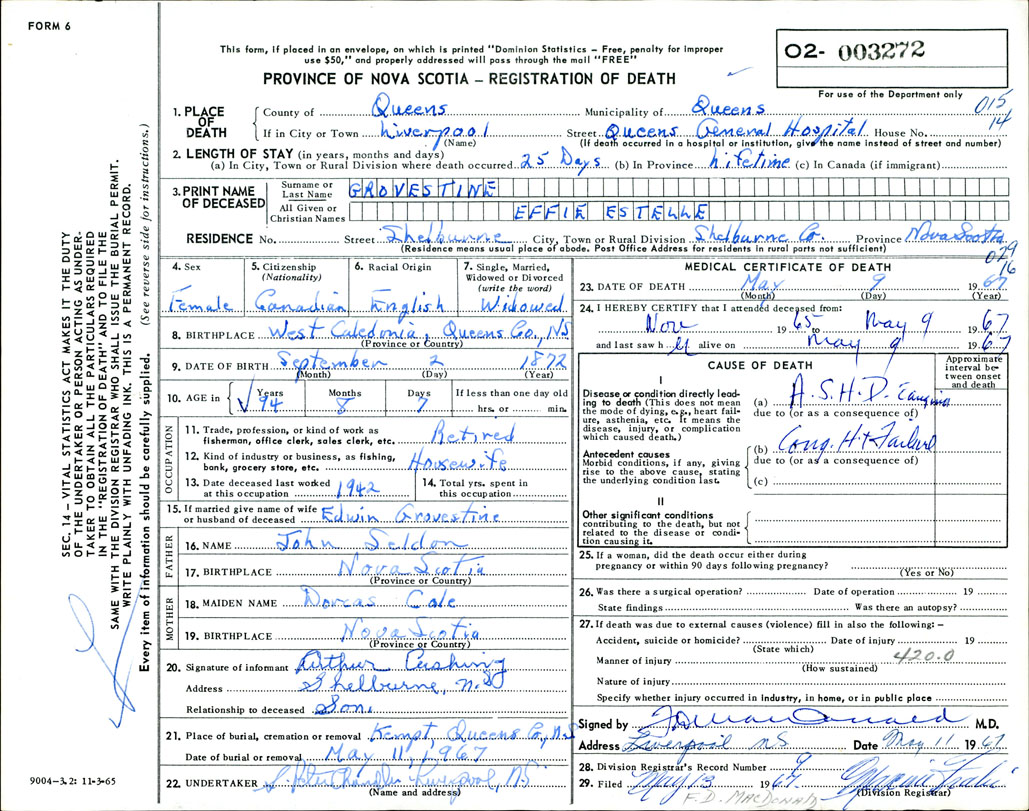 FORM 6
This form, if placed in an envelope, on which is printed "Dominion Statistics – Free, penalty for improper
use $50," and properly addressed will pass through the mail "FREE"
PROVINCE OF NOVA SCOTIA – REGISTRATION OF DEATH
02- 003272
For use of the Department only
015
14
1. PLACE OF DEATH
County of Queens Municipality of Queens
If in City or Town Liverpool Street Queens General Hospital House No.
(Name) (If death occurred in a hospital or institution, give the name instead of street and number)
2. LENGTH OF STAY (in years, months and days)
(a) In City, Town or Rural Division where death occurred 25 Days (b) In Province lifetime (c) In Canada (if immigrant)
3. PRINT NAME OF DECEASED
Surname or Last Name GROVESTINE
All Given or Christian Names EFFIE ESTELLE
RESIDENCE No. Street Shelburne City, Town or Rural Division Shelburne Co. Province Nova Scotia
(Residence means usual place of abode. Post Office Address for residents in rural parts not sufficient)
029
16
4. Sex 5. Citizenship (Nationality) 6. Racial Origin 7. Single, Married, Widowed or Divorced (write the word)
Female Canadian English Widowed
8. BIRTHPLACE West Caledonia, Queens Co., NS
(Province or Country)
9. DATE OF BIRTH September 2 1872
(Month) (Day) (Year)
10. AGE in Years Months Days If less than one day old
94 8 7 hrs. or min.
OCCUPATION
11. Trade, profession, or kind of work as fisherman, office clerk, sales clerk, etc. Retired
12. Kind of industry or business, as fishing, bank, grocery store, etc. Housewife
13. Date deceased last worked at this occupation 1942 14. Total yrs. spent in this occupation
15. If married give name of wife or husband of deceased Edwin Grovestine
FATHER
16. NAME John Seldon
17. BIRTHPLACE Nova Scotia
(Province or Country)
MOTHER
18. MAIDEN NAME Dorcas Cole
19. BIRTHPLACE Nova Scotia
(Province or Country)
20. Signature of informant Arthur Cushing
Address Shelburne, N.S
Relationship to deceased Son.
21. Place of burial, cremation or removal Kempt, Queens Co., N.S
Date of burial or removal May 11, 1967
22. UNDERTAKER Chandler Liverpool, N.S.
(Name and address)
MEDICAL CERTIFICATE OF DEATH
23. DATE OF DEATH May 9 1967
(Month) (Day) (Year)
24. I HEREBY CERTIFY that I attended deceased from:
Nov 1965 to May 9 1967
and last saw h er alive on May 9 1967
CAUSE OF DEATH
Approximate interval between onset and death
I
Disease or condition directly leading to death (This does not mean the mode of dying, e.g., heart failure, asthenia, etc. It means the disease, injury, or complication which caused death.)
(a) A.S.H.D.
due to (or as a consequence of)
Antecedent causes
Morbid conditions, if any, giving rise to the above cause, stating the underlying condition last.
(b) Cong. Ht Failure
due to (or as a consequence of)
(c)
II
Other significant conditions
contributing to the death, but not related to the disease or condition causing it.
25. If a woman, did the death occur either during pregnancy or within 90 days following pregnancy?
(Yes or No)
26. Was there a surgical operation? Date of operation 19
State findings Was there an autopsy?
27. If death was due to external causes (violence) fill in also the following: –
Accident, suicide or homicide? Date of injury 19
(State which)
Manner of injury 420.0
(How sustained)
Nature of injury
Specify whether injury occurred in industry, in home, or in public place
Signed by M.D.
Address Liverpool NS Date May 11 1967
28. Division Registrar's Record Number 9
29. Filed May 13 1967
(Division Registrar)
F.D. MACDONALD
SEC. 14 – VITAL STATISTICS ACT MAKES IT THE DUTY
OF THE UNDERTAKER OR PERSON ACTING AS UNDER-
TAKER TO OBTAIN ALL THE PARTICULARS REQUIRED
IN THE "REGISTRATION OF DEATH" AND TO FILE THE
SAME WITH THE DIVISION REGISTRAR WHO SHALL ISSUE THE BURIAL PERMIT.
WRITE PLAINLY WITH UNFADING INK. THIS IS A PERMANENT RECORD.
Every item of information should be carefully supplied. (See reverse side for instructions.)
9004-3.2: 11-3-65